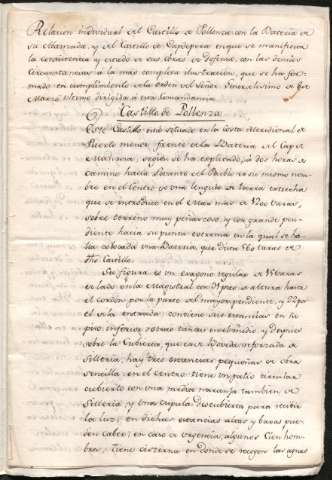 Relacion individual del Castillo de Pollenza con la Bateria de
la Marinada, y el Castillo de Capdepera en que se manifiesta
la consistencia y estado de sus obras de defensa, con las demas
circunstancias a la mas completa ilustracion, que se ha for
mado en cumplimiento de la orden del Señor
Castillo de Pollenza
Este Castillo está situado en la costa Meridional de
Puerto menor, frente de la Bateria del Cape
Manresa, segun se ha explicado, á dos horas de
camino hacia Levante del Pueblo de su mismo nom
bre en el centro de una lengüeta de tierra estrecha
que se introduce en el Mar mas de 1200 varas,
sobre terreno muy peñascoso, y con grande pen
diente hacia su punta extrema en la qual se ha
lla colocada una Bateria, que dista 560 varas de
dho Castillo.
Su figura es un exagono regular de varas
de lado en la Magistral con pies de altura hasta
el cordon por la parte del mayor pendiente, y por
el de la entrada; contiene seis estancias en su
piso inferior, otras tantas en el segundo y despues
sobre la Cubierta, que es de Boveda reforzada de
Silleria, hay tres estancias pequeñas de obra
sencilla en el centro tiene un patio circular
cubierto con una media naranja tambien de
Silleria, y una cupula descubierta para recibir
la luz; en dichas estancias altas y bajas pue
den caber, en caso de urgencia, algunos cien hom
bres, tiene cisterna en donde se recogen las aguas